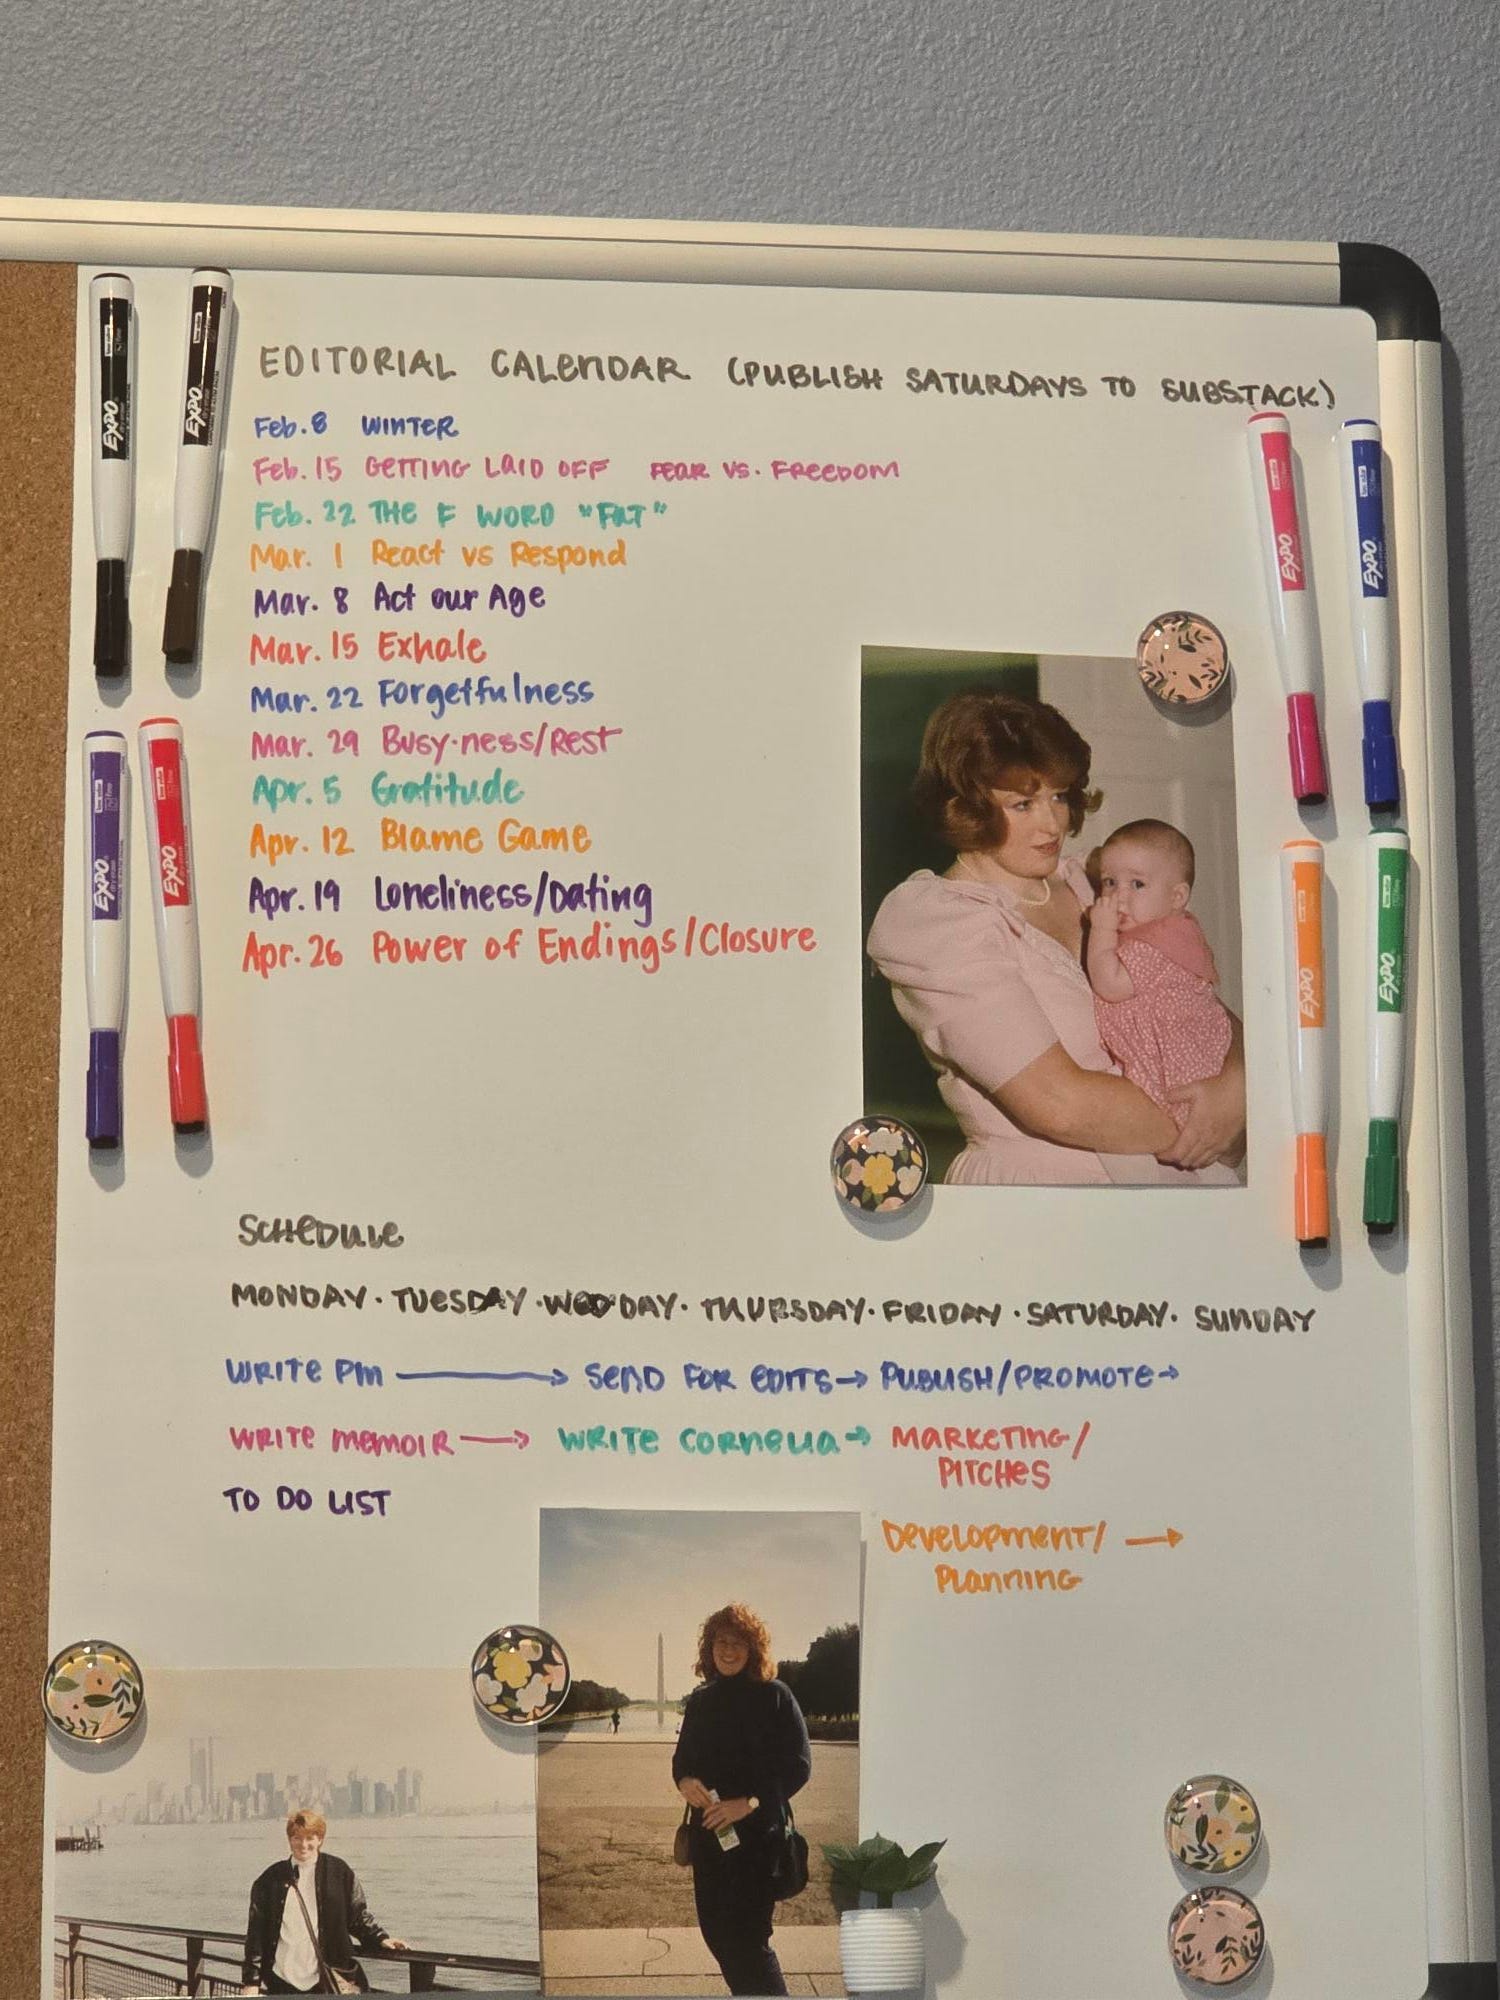 EDITORIAL CALENDAR (PUBLISH SATURDAYS TO SUBSTACK)
Feb. 8 WINTER
Feb. 15 GETTING LAID OFF FEAR VS. FREEDOM
Feb. 22 THE F WORD "FAT"
Mar. 1 React vs Respond
Mar. 8 Act our Age
Mar. 15 Exhale
Mar. 22 Forgetfulness
Mar. 29 Busy-ness/Rest
Apr. 5 Gratitude
Apr. 12 Blame Game
Apr. 19 Loneliness/Dating
Apr. 26 Power of Endings/Closure
SCHEDULE
MONDAY · TUESDAY · WED DAY · THURSDAY · FRIDAY · SATURDAY · SUNDAY
WRITE PM → SEND FOR EDITS → PUBLISH/PROMOTE →
WRITE MEMOIR → WRITE CORNELIA → MARKETING/
PITCHES
TO DO LIST
DEVELOPMENT/ →
PLANNING
EXPO
EXPO
EXPO
EXPO
EXPO
EXPO
EXPO
EXPO